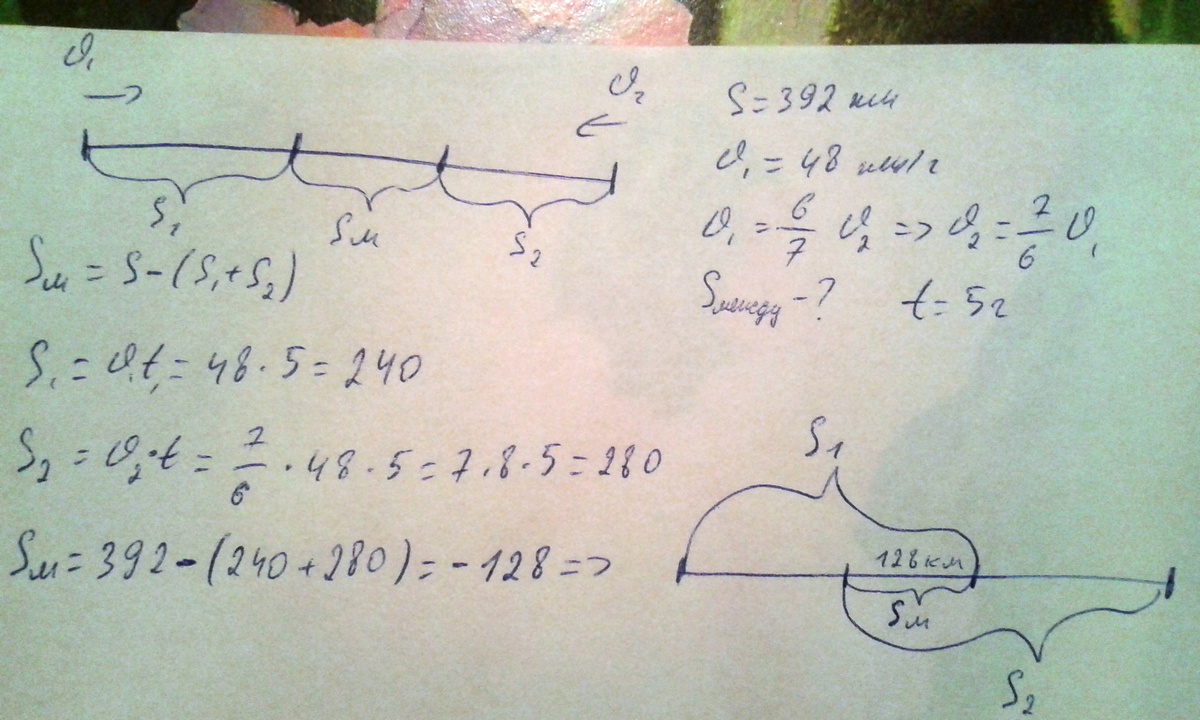 ϑ₁
ϑ₂
S₁
Sм
S₂
S = 392 км
ϑ₁ = 48 км/г
ϑ₁ = 6/7 ϑ₂ => ϑ₂ = 7/6 ϑ₁
Sмежду - ? t = 5г
Sм = S - (S₁ + S₂)
S₁ = ϑ₁t₁ = 48 · 5 = 240
S₂ = ϑ₂·t = 7/6 · 48 · 5 = 7 · 8 · 5 = 280
Sм = 392 - (240 + 280) = - 128 =>
S1
128 км
Sм
S₂